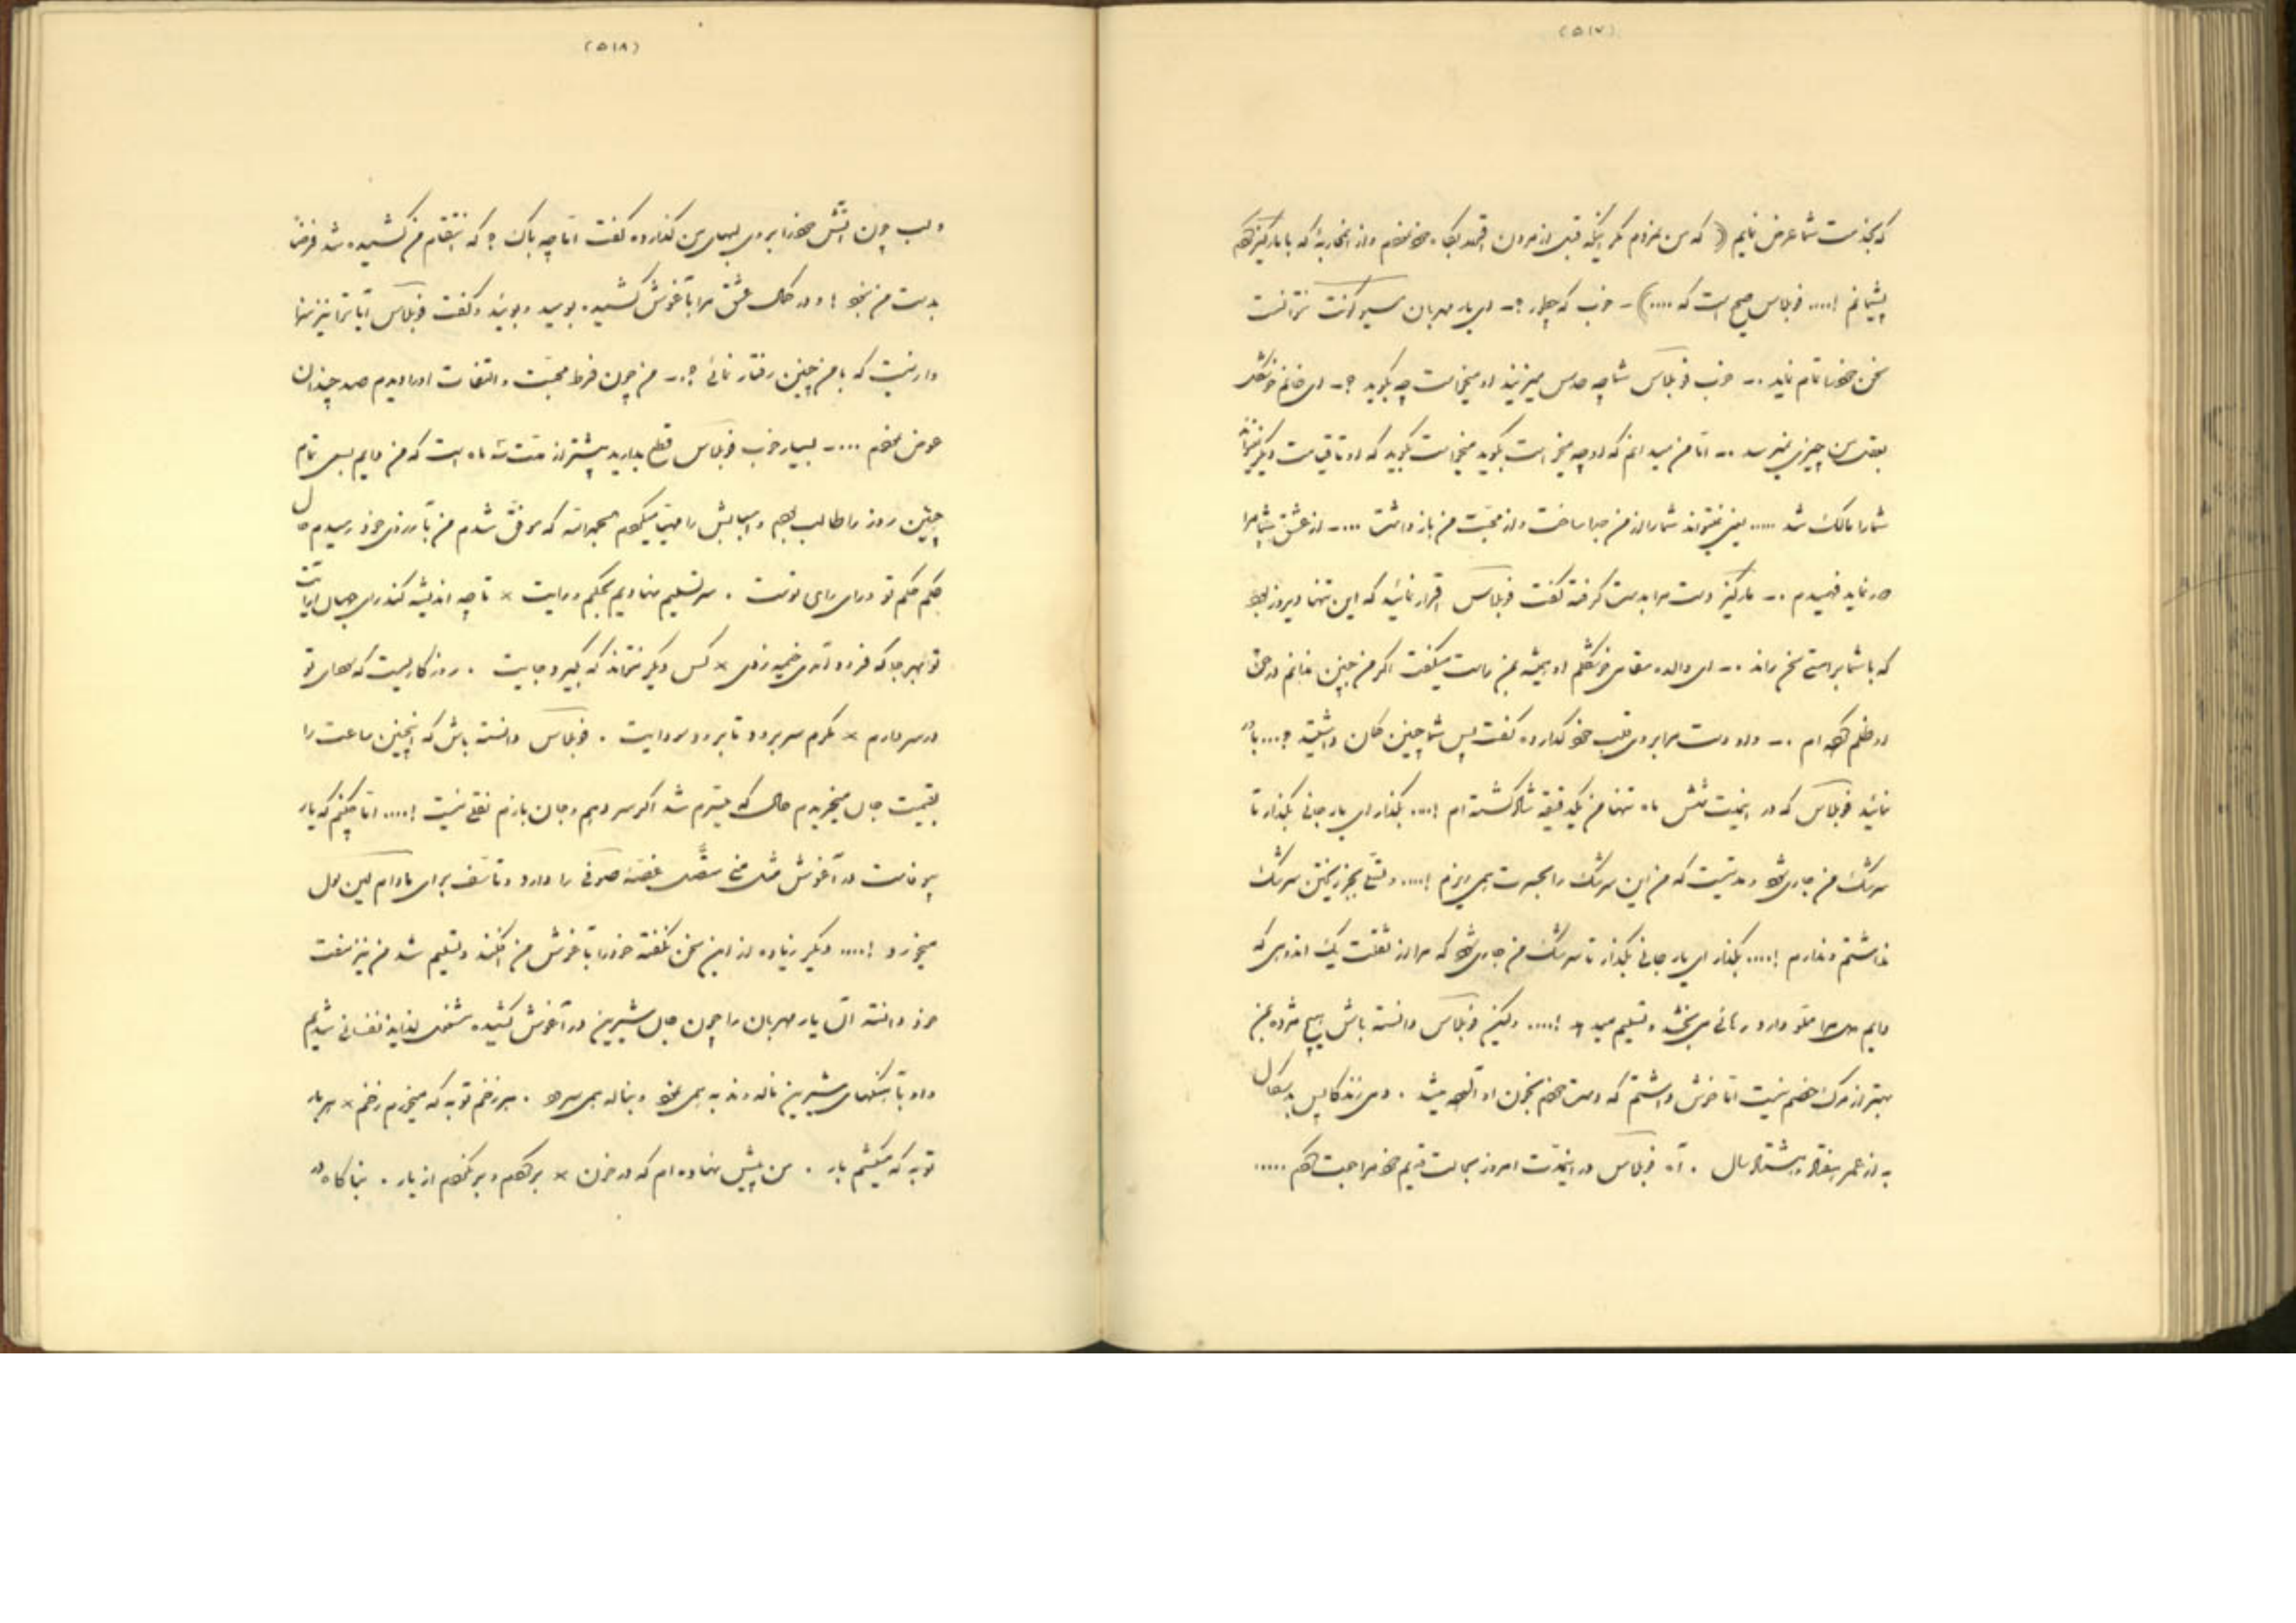 (۵۱۷)
که بخدمت شما عرض نمایم (که من نمردم مگر اینکه قبل از مردن
پشیمانم !.... فوبلاس صحیح است که ....) ـ خوب که چطور ؟ـ ای یار مهربان نتوانست
سخن خود را تمام نماید .ـ خوب فوبلاس شما چه حدس میزنید او میخواست چه بگوید ؟ـ ای خانم
بعقل من چیزی نمیرسد .ـ اما من میدانم که او چه میخواست بگوید میخواست بگوید که او تا قیامت دیگر
شما را مالک شد ..... یعنی نمیتواند شما را از من جدا ساخت و از محبت من باز داشت ....ـ از عشق شما مرا
فهمیدم .ـ مارکیز دست مرا بدست گرفته گفت فوبلاس اقرار نمائید که این تنها دیروز بود
که با شما براستی سخن راند .ـ ای والده او همیشه بمن راست میگفت اگر من چنین ندانم در حق
او ظلم کرده ام .ـ و او دست مرا بروی قلب خود گذارده گفت پس شما چنین گمان داشتید ؟....
نمائید فوبلاس که در اینمدت شش ماه تنها من یکدقیقه شاد گشته ام !.... بگذار ای یار جانی بگذار تا
سرشک من جاری شود و مدتیست که من این سرشک را بحسرت همی ریزم !.... و تسلی بجز ریختن سرشک
نداشتم و ندارم !.... بگذار ای یار جانی بگذار تا سرشک من جاری شود که مرا از ثقلت یک اندوهی که
دایم دل مرا مملو دارد رهائی می بخشد و تسلیم میدهد !.... ولیکن فوبلاس دانسته باش هیچ مژده بمن
بهتر از مرگ خصم نیست اما خوش داشتم که دست خودم بخون او آلوده میشد . دمی زندگانی پس از بدسگال
به از عمر هفتاد و هشتاد سال . آه فوبلاس در اینمدت امروز بحالت قدیم خود مراجعت کردم .....
(۵۱۸)
و لب چون آتش خود را بروی لبهای من گذارده گفت اما چه باک ؟ که انتقام من کشیده شد فرضا
بدست من نبود ! و در حال عشق مرا بآغوش کشیده بوسید و بوئید و گفت فوبلاس آیا ترا نیز
دارنیست که با من چنین رفتار نمائی ؟.ـ من چون فرط محبت و التفات او را دیدم صد چندان
عوض نمودم ....ـ بسیار خوب فوبلاس قطع بدارید بیشتر از مدت سه ماه است که من دایم بسعی تمام
چنین روز را طالب بودم و اسبابش را مهیا میکردم بحمدالله که موفق شدم من بآرزوی خود رسیدم
حکم حکم تو و رای رای توست . سر تسلیم نهادیم بحکم و رایت × تا چه اندیشه کند رای جهان آرایت
تو بهر جا که فرود آمدی خیمه زدی × کس دیگر نتواند که بگیرد جایت . روزگاریست که سودای تو
در سر دارم × مگرم سر برود تا برود سودایت . فوبلاس دانسته باش که اینچنین ساعت را
بقیمت جان میخریدم حال که میسرم شد اگر سر دهم و جان بازم نقلی نیست !.... اما چکنم که یار
بیوفاست در آغوش من غصه صوفی را دارد و تأسف برای مادام لین یول
میخورد !.... دیگر زیاده از این سخن نگفته خود را بآغوش من افکند و تسلیم شد من نیز مفت
خود دانسته آن یار مهربان را چون جان شیرین در آغوش کشیده مشغول لذایذ نفسانی شدیم
و او بآهنگهای شیرین ناله و ندبه همی نمود و بناله همی سرود . سر زخم توبه که میخورم زخم × سر بار
توبه که میکشم بار . من پیش نهاده ام که در خون × برگردم و برنگردم از یار . بناگاه در